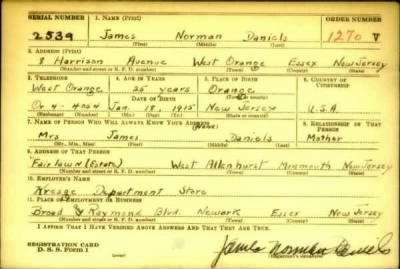 SERIAL NUMBER 1. NAME (Print) ORDER NUMBER
2539 James Norman Daniels 1270 V
(First) (Middle) (Last)
2. ADDRESS (Print)
8 Harrison Avenue West Orange Essex New Jersey
(Number and street or R. F. D. number) (Town) (County) (State)
3. TELEPHONE 4. AGE IN YEARS 5. PLACE OF BIRTH 6. COUNTRY OF CITIZENSHIP
West Orange 25 years Orange
DATE OF BIRTH (Town or county)
Or 4-4054 Jan. 18, 1915 New Jersey U.S.A.
(Exchange) (Number) (Mo.) (Day) (Yr.) (State or country)
7. NAME OF PERSON WHO WILL ALWAYS KNOW YOUR ADDRESS 8. RELATIONSHIP OF THAT PERSON
Mrs James Daniels Mother
(Mr., Mrs., Miss) (First) (Middle) (Last)
9. ADDRESS OF THAT PERSON
Fairlawn (Estate) West Allenhurst Monmouth New Jersey
(Number and street or R. F. D. number) (Town) (County) (State)
10. EMPLOYER'S NAME
Kresge Department Store
11. PLACE OF EMPLOYMENT OR BUSINESS
Broad & Raymond Blvd. Newark Essex New Jersey
(Number and street or R. F. D. number) (Town) (County) (State)
I AFFIRM THAT I HAVE VERIFIED ABOVE ANSWERS AND THAT THEY ARE TRUE.
REGISTRATION CARD
D. S. S. Form 1
James Norman Daniels